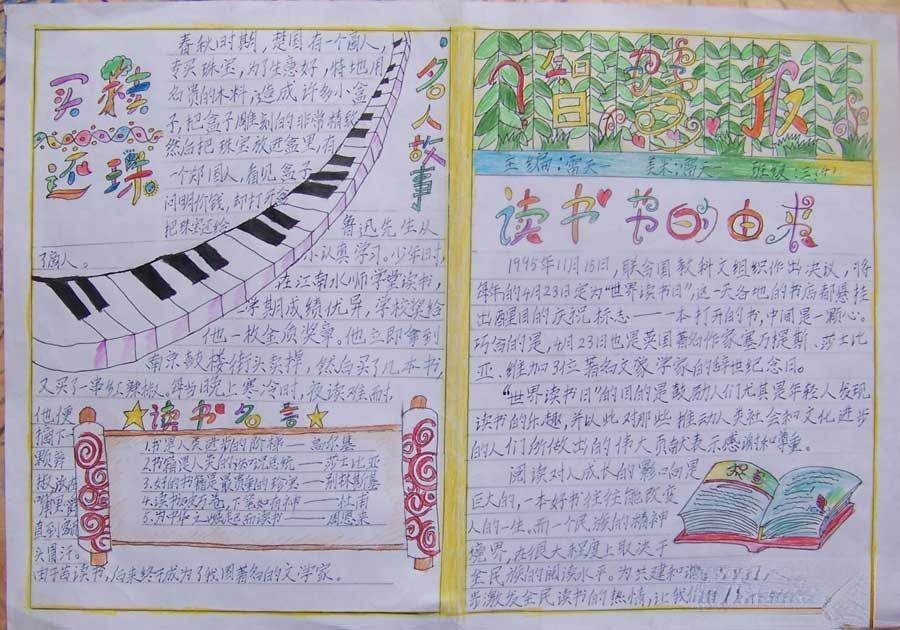 买椟还珠
春秋时期，楚国有一个商人，
专买珠宝，为了生意好，特地用
名贵的木料，造成许多小盒
子，把盒子雕刻的非常精致
然后把珠宝放进盒里，有
一个郑国人，看见盒子
问明价钱，却打开盒
把珠宝还给
了商人。
名人故事
鲁迅先生从
小认真学习。少年时，
在江南水师学堂读书，
学期成绩优异，学校奖给
他一枚金质奖章。他立即拿到
南京鼓楼街头卖掉，然后买了几本书，
又买了一串红辣椒。每当晚上寒冷时，夜读难耐，
他便
摘下一
颗
直到
头冒汗。
由于苦读书，后来终于成为了我国著名的文学家。
读书名言
1.书是人类进步的阶梯——高尔基
2.书籍是人类的——莎士比亚
3.好的书籍是最贵重的珍宝——别林斯基
4.读书破万卷，下笔如有神——杜甫
5.为中华之崛起而读书——周恩来
报
主编：雷天 美术：雷天 班级：三
读书节的由来
1995年11月15日，联合国教科文组织作出决议，将
每年的4月23日定为“世界读书日”，这一天各地的书店都悬挂
出醒目的庆祝标志——一本打开的书，中间是一颗心。
巧合的是，4月23日也是英国著名作家塞万提斯、莎士比
亚、维加31位著名文豪学家的辞世纪念日。
“世界读书日”的目的是鼓励人们尤其是年轻人发现
读书的乐趣，并以此对那些推动人类社会和文化进步
的人们所做出的伟大贡献表示感谢和尊重。
阅读对人成长的影响是
巨大的，一本好书往往能改变
人的一生。而一个民族的精神
境界，在很大程度上取决于
全民族的阅读水平。为共建和谐
步激发全民读书的热情，让我们